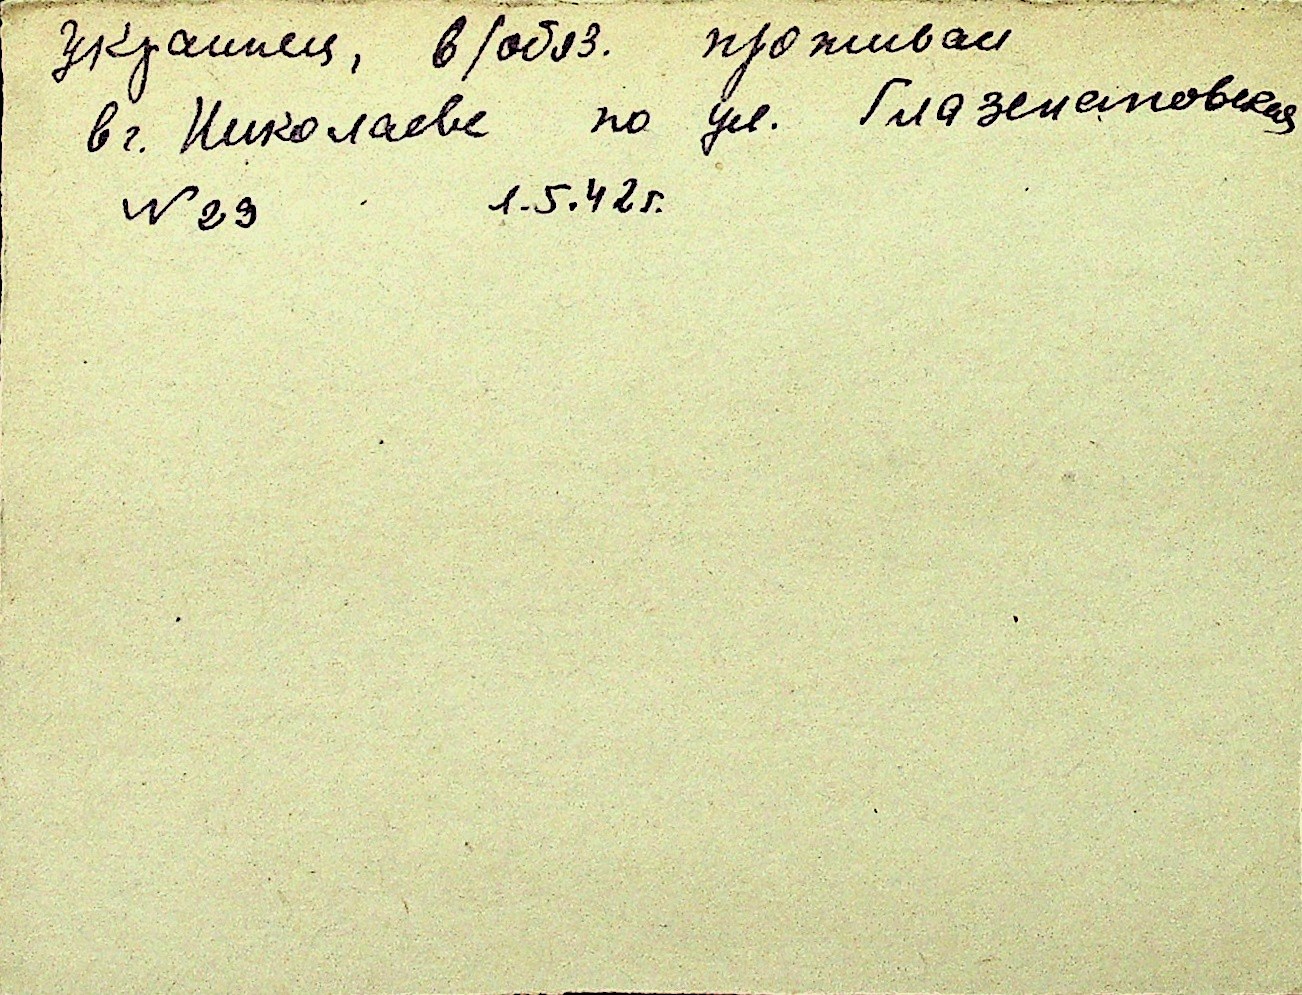 Украинец, в/обяз. проживал
в г. Николаеве по ул. Глазенаповская
N 29 1.5.42 г.